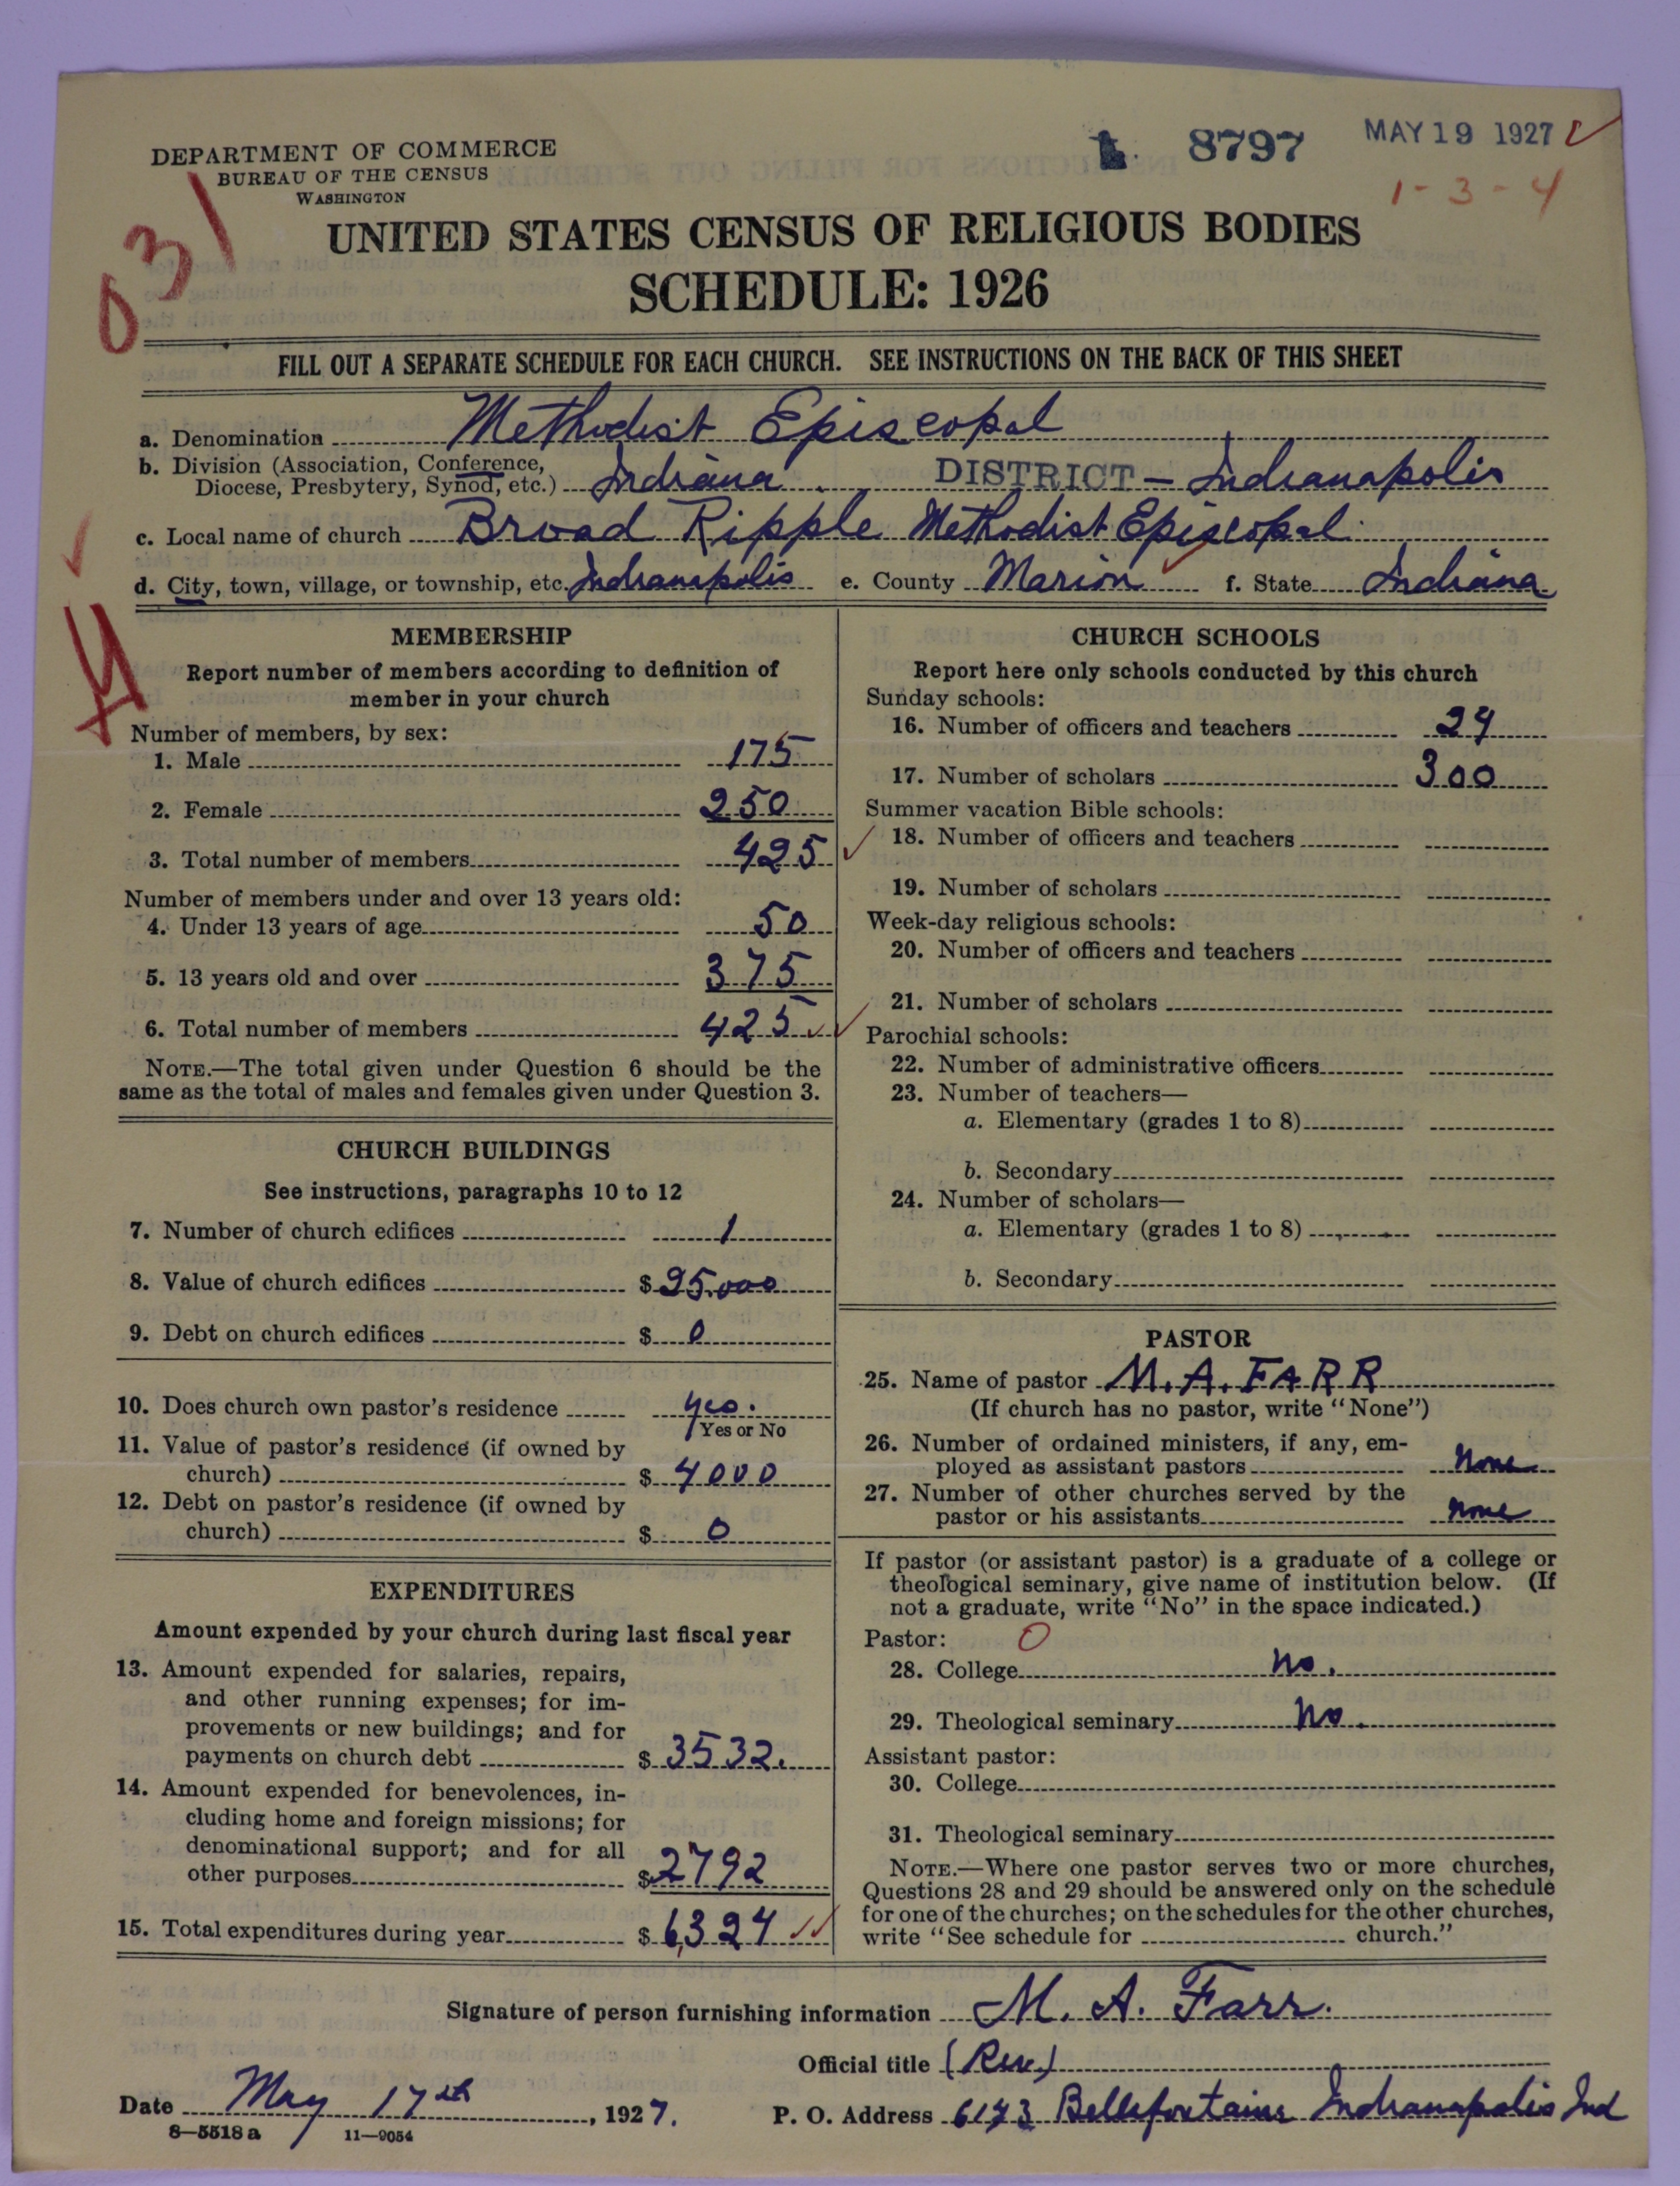 DEPARTMENT OF COMMERCE
BUREAU OF THE CENSUS
WASHINGTON
8797
MAY 19 1927
1-3-4
031
UNITED STATES CENSUS OF RELIGIOUS BODIES
SCHEDULE: 1926
FILL OUT A SEPARATE SCHEDULE FOR EACH CHURCH. SEE INSTRUCTIONS ON THE BACK OF THIS SHEET
a. Denomination Methodist Episcopal
b. Division (Association, Conference,
Diocese, Presbytery, Synod, etc.) Indiana DISTRICT – Indianapolis
c. Local name of church Broad Ripple Methodist Episcopal
d. City, town, village, or township, etc. Indianapolis e. County Marion f. State Indiana
MEMBERSHIP
Report number of members according to definition of
member in your church
Number of members, by sex:
1. Male 175
2. Female 250
3. Total number of members 425
Number of members under and over 13 years old:
4. Under 13 years of age 50
5. 13 years old and over 375
6. Total number of members 425
NOTE.—The total given under Question 6 should be the
same as the total of males and females given under Question 3.
CHURCH BUILDINGS
See instructions, paragraphs 10 to 12
7. Number of church edifices 1
8. Value of church edifices $
9. Debt on church edifices $ 0
10. Does church own pastor's residence yes.
Yes or No
11. Value of pastor's residence (if owned by
church) $ 4000
12. Debt on pastor's residence (if owned by
church) $ 0
EXPENDITURES
Amount expended by your church during last fiscal year
13. Amount expended for salaries, repairs,
and other running expenses; for im-
provements or new buildings; and for
payments on church debt $ 3532.
14. Amount expended for benevolences, in-
cluding home and foreign missions; for
denominational support; and for all
other purposes $ 2792
15. Total expenditures during year $ 6,324
CHURCH SCHOOLS
Report here only schools conducted by this church
Sunday schools:
16. Number of officers and teachers 24
17. Number of scholars 300
Summer vacation Bible schools:
18. Number of officers and teachers
19. Number of scholars
Week-day religious schools:
20. Number of officers and teachers
21. Number of scholars
Parochial schools:
22. Number of administrative officers
23. Number of teachers—
a. Elementary (grades 1 to 8)
b. Secondary
24. Number of scholars—
a. Elementary (grades 1 to 8)
b. Secondary
PASTOR
25. Name of pastor M. A. FARR
(If church has no pastor, write "None")
26. Number of ordained ministers, if any, em-
ployed as assistant pastors None
27. Number of other churches served by the
pastor or his assistants none
If pastor (or assistant pastor) is a graduate of a college or
theological seminary, give name of institution below. (If
not a graduate, write "No" in the space indicated.)
Pastor: 0
28. College No.
29. Theological seminary No.
Assistant pastor:
30. College
31. Theological seminary
NOTE.—Where one pastor serves two or more churches,
Questions 28 and 29 should be answered only on the schedule
for one of the churches; on the schedules for the other churches,
write "See schedule for church."
Signature of person furnishing information M. A. Farr.
Official title (Rev)
Date May 17th, 1927.
P. O. Address 6143 Bellefontaine Indianapolis Ind
8—5518 a 11—9054